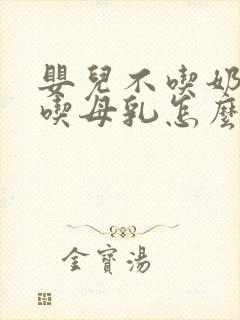 嬰兒不喫奶
喫母乳怎麼
金寶湯